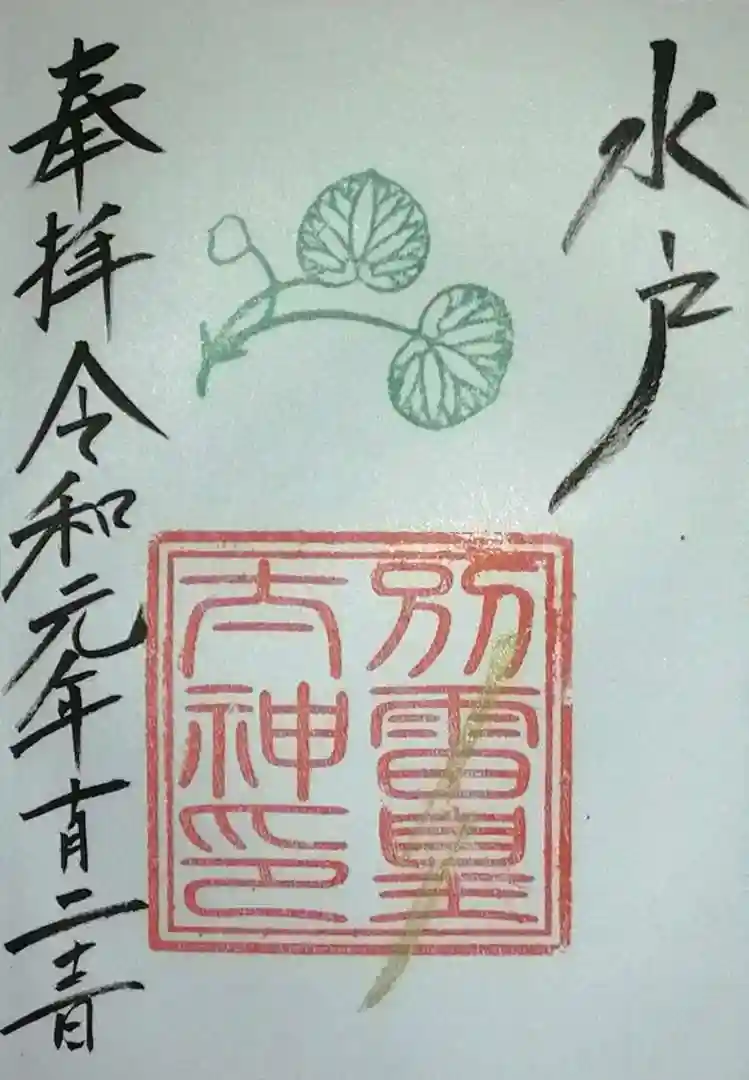 水戸
別雷皇
太神印
奉拝 令和元年十月二十一日